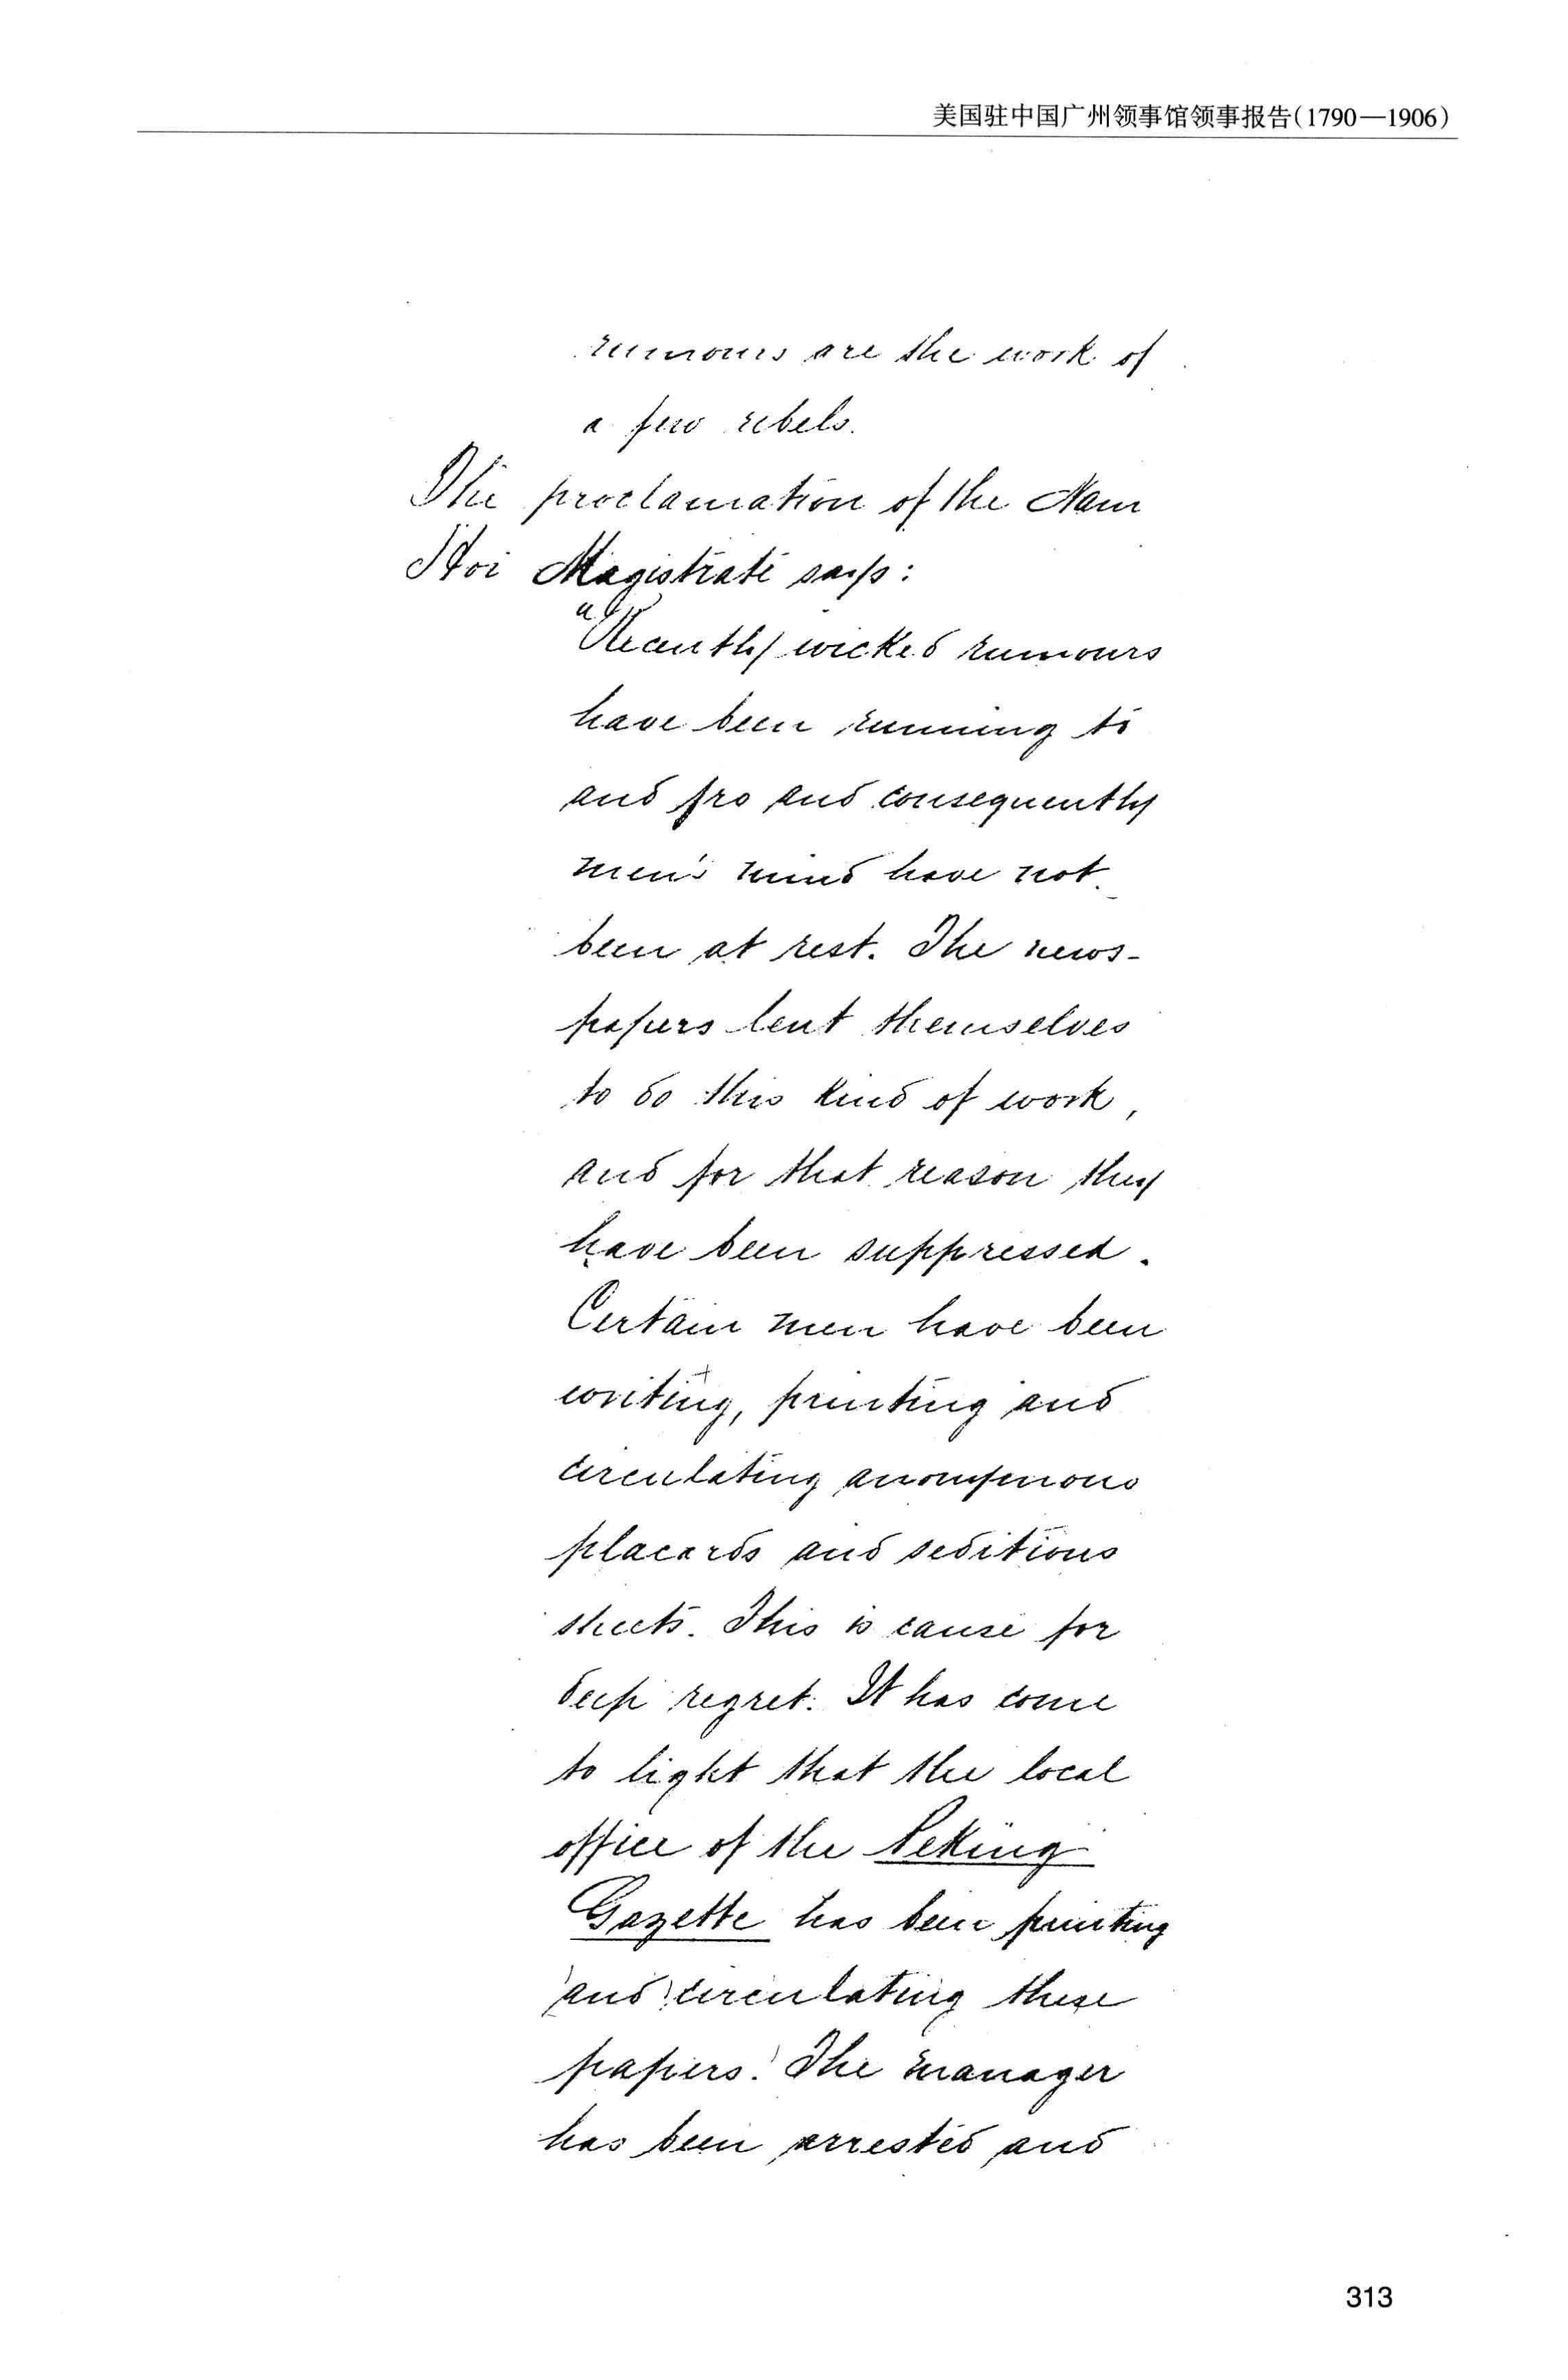 美国驻中国广州领事馆领事报告(1790—1906)
rumours are the work of
a few rebels.
The proclamation of the Nam
Hoi Magistrate says:
"Recently wicked rumours
have been running to
and fro and consequently
men's mind have not
been at rest. The news-
papers lent themselves
to do this kind of work,
and for that reason they
have been suppressed.
Certain men have been
writing, printing and
circulating anonymous
placards and seditious
sheets. This is cause for
deep regret. It has come
to light that the local
office of the Peking
Gazette has been printing
and circulating these
papers. The manager
has been arrested and
313